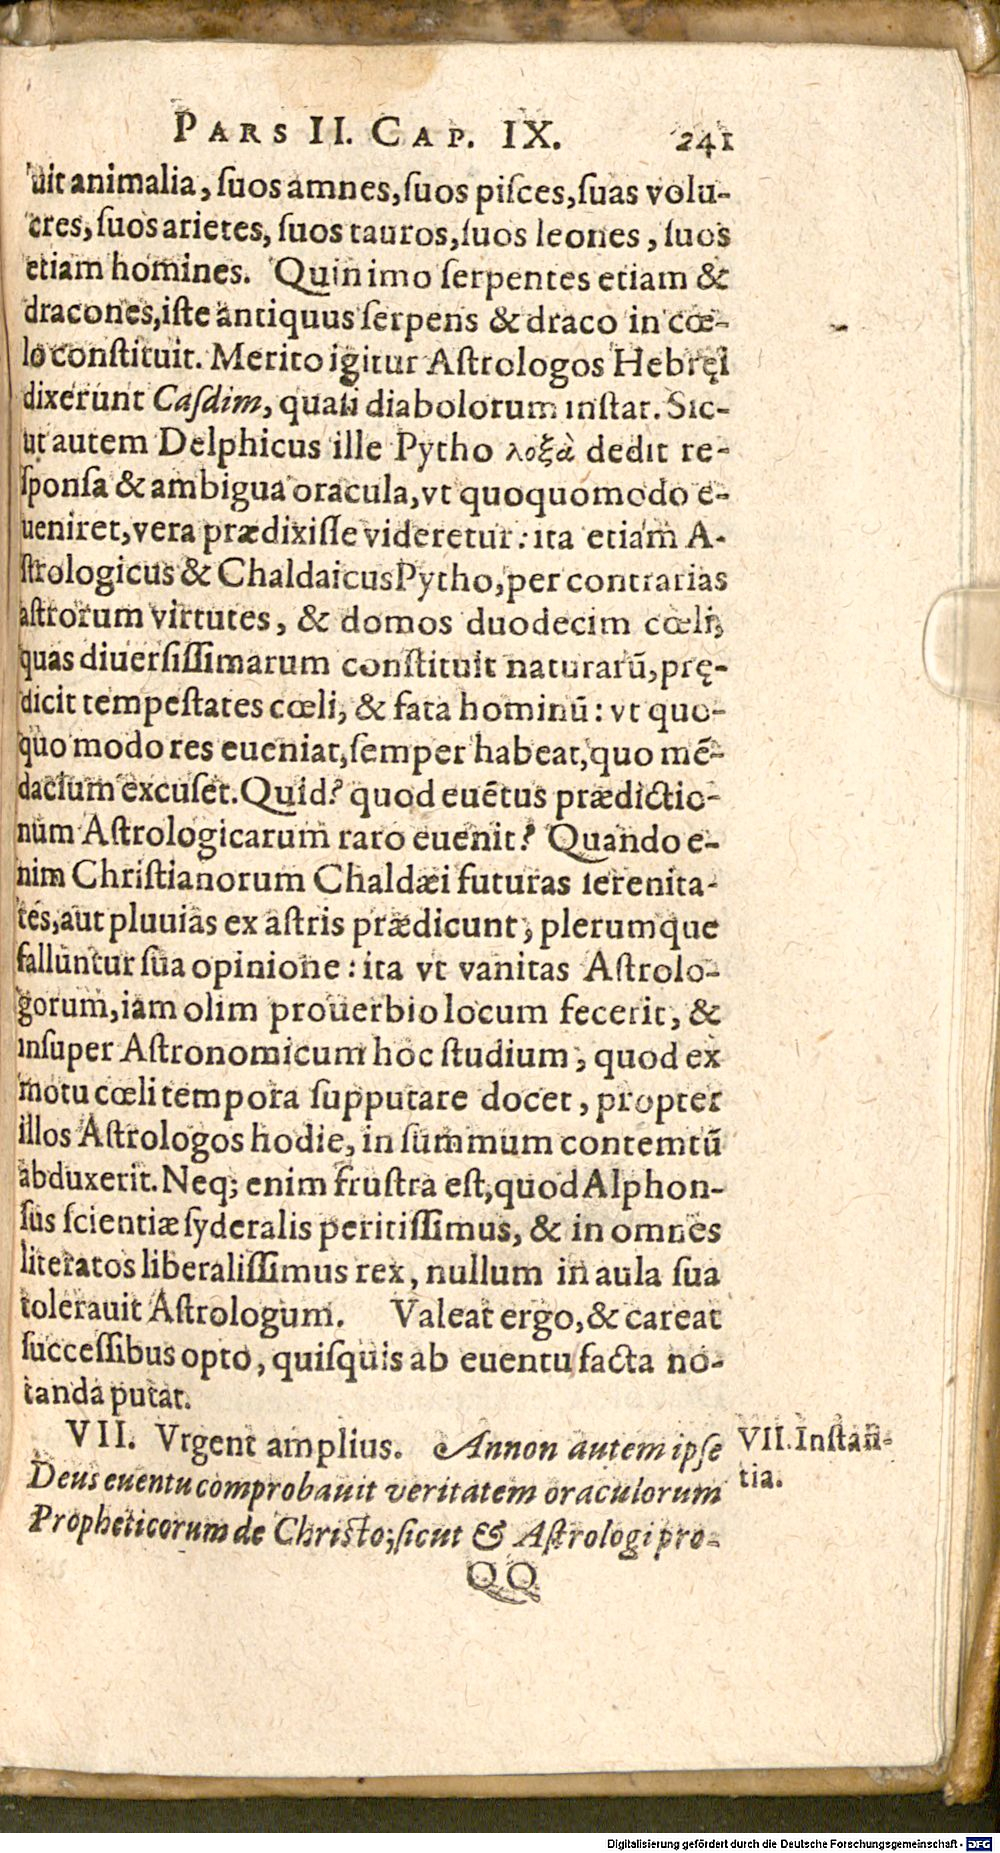 PARS II. CAP. IX. 241
uit animalia, ſuos amnes, ſuos piſces, ſuas volu-
cres, ſuos arietes, ſuos tauros, ſuos leones, ſuos
etiam homines. Quin imo ſerpentes etiam &
dracones, iſte antiquus ſerpens & draco in cœ-
lo conſtituit. Merito igitur Aſtrologos Hebręi
dixerunt Caſdim, quaſi diabolorum inſtar. Sic-
ut autem Delphicus ille Pytho λοξὰ dedit re-
ſponſa & ambigua oracula, vt quoquomodo e-
ueniret, vera prædixiſſe videretur: ita etiam A-
ſtrologicus & Chaldaicus Pytho, per contrarias
aſtrorum virtutes, & domos duodecim cœli,
quas diuerſiſſimarum conſtituit naturarū, prę-
dicit tempeſtates cœli, & fata hominū: vt quo-
quo modo res eueniat, ſemper habeat, quo mē-
dacium excuſet. Quid? quod euētus prædictio-
num Aſtrologicarum raro euenit? Quando e-
nim Chriſtianorum Chaldæi futuras ſerenita-
tes, aut pluuias ex aſtris prædicunt, plerumque
falluntur ſua opinione: ita vt vanitas Aſtrolo-
gorum, iam olim prouerbio locum fecerit, &
inſuper Aſtronomicum hoc ſtudium, quod ex
motu cœli tempora ſupputare docet, propter
illos Aſtrologos hodie, in ſummum contemtū
abduxerit. Neq; enim fruſtra eſt, quod Alphon-
ſus ſcientiæ ſyderalis peritiſſimus, & in omnes
literatos liberaliſſimus rex, nullum in aula ſua
tolerauit Aſtrologum. Valeat ergo, & careat
ſucceſſibus opto, quiſquis ab euentu facta no-
tanda putat.
VII. Vrgent amplius. Annon autem ipſe
Deus euentu comprobauit veritatem oraculorum
Propheticorum de Chriſto; ſicut & Aſtrologi pro-
VII. Inſtan-
tia.
QQ
Digitalisierung gefördert durch die Deutsche Forschungsgemeinschaft - DFG